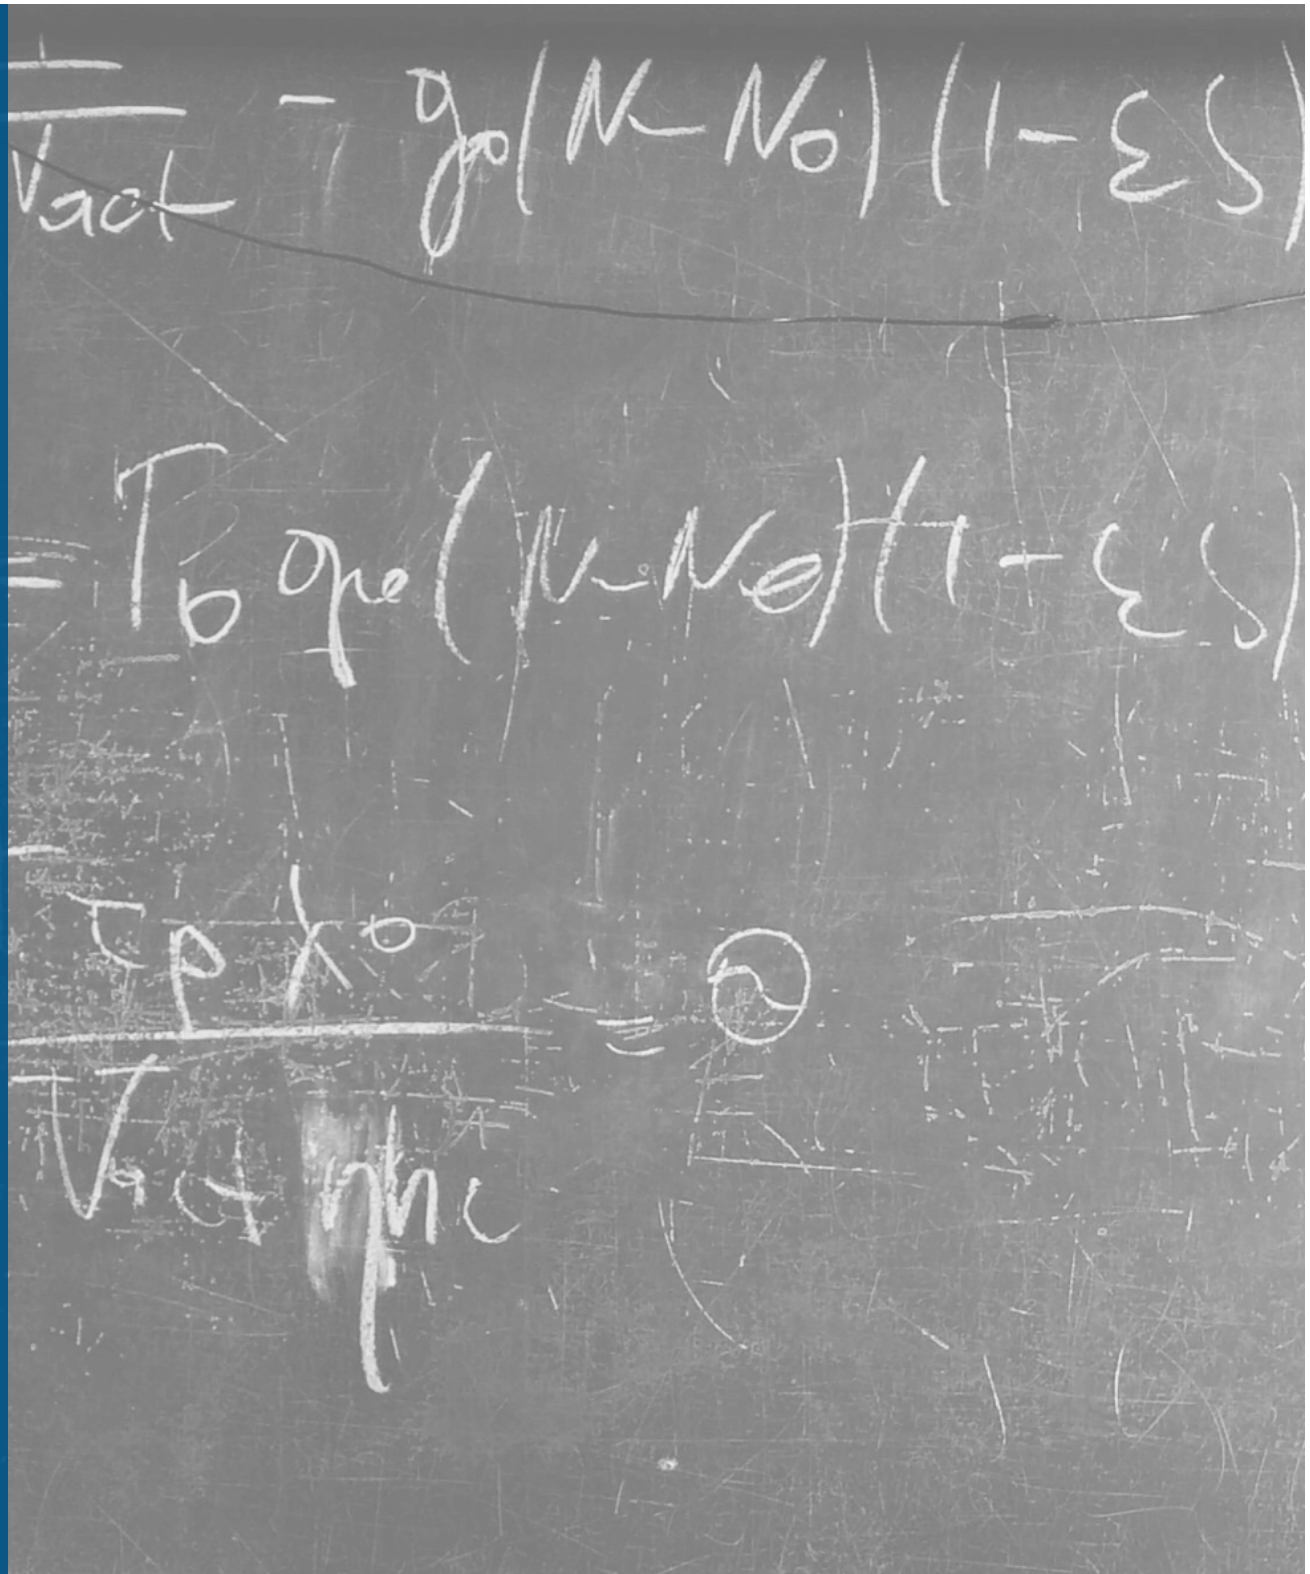 I
V_act - g_0(N - N_0)(1 - εS)
= Γ_0 g_0(N - N_0)(1 - εS)
τ_p λ_0
V_act η h c = Θ